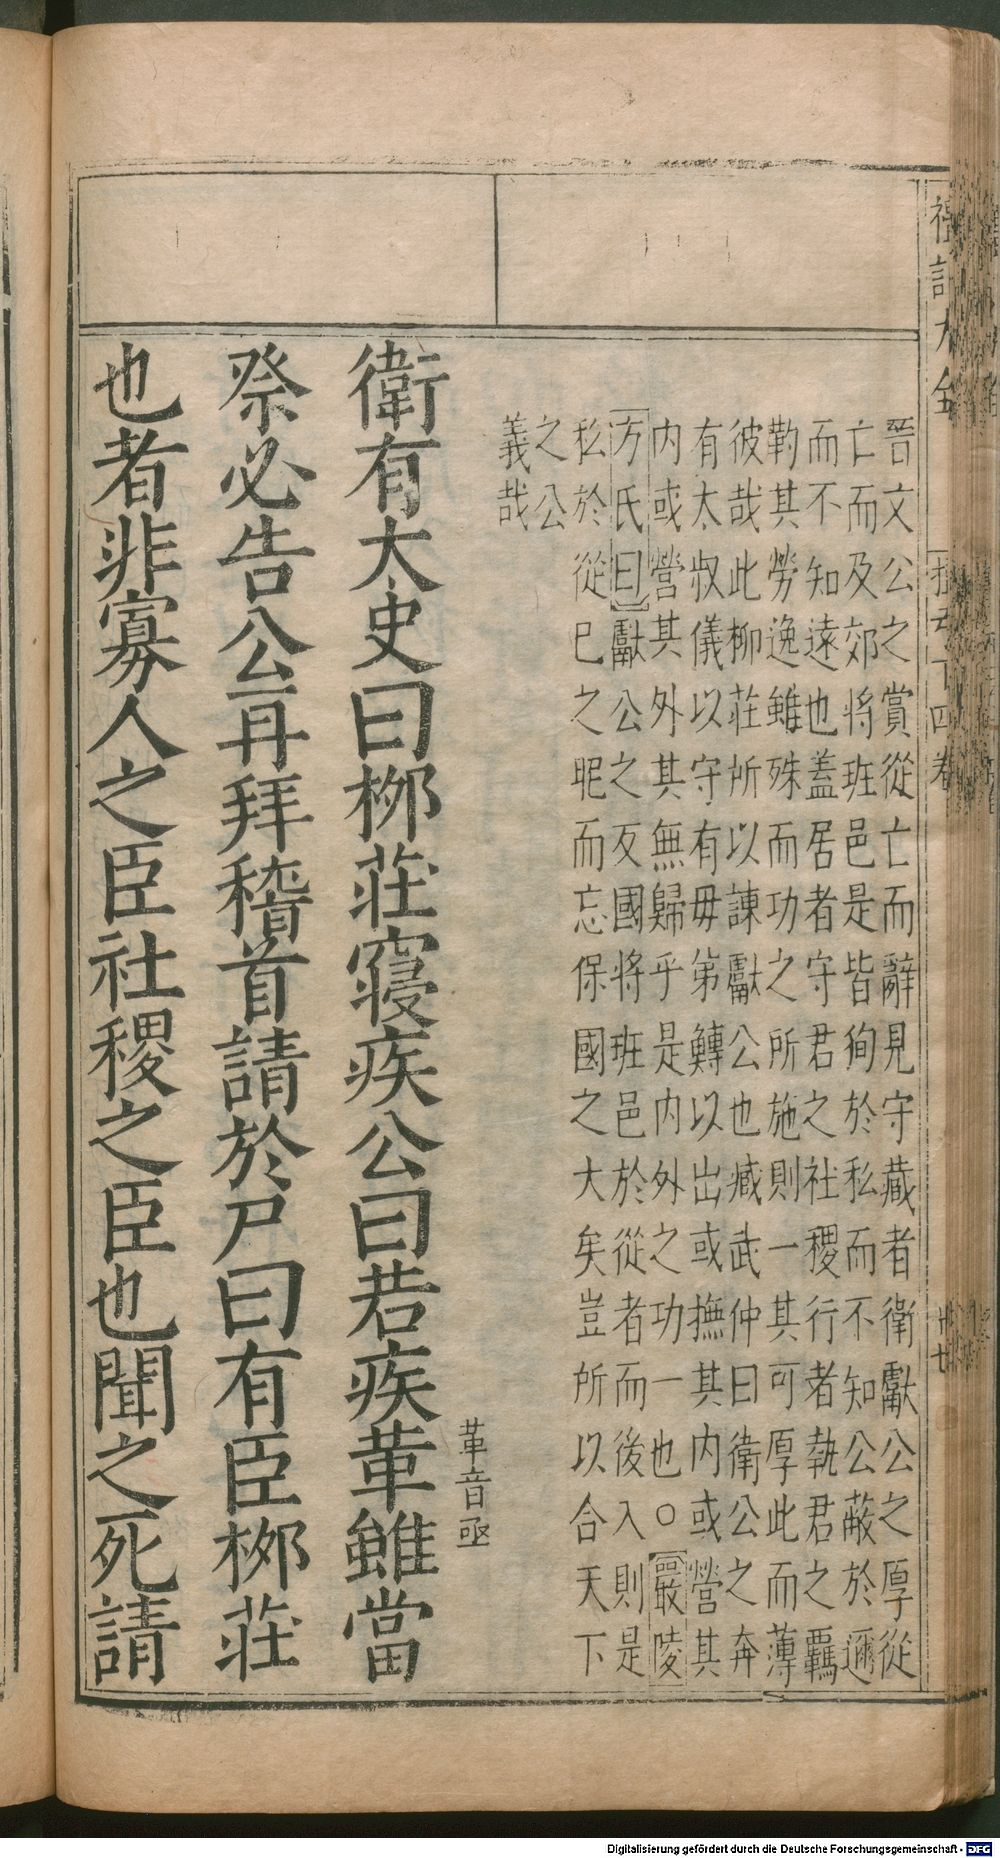 晉文公之賞從亡而辭見守藏者衛獻公之厚從
亡而及郊將班邑是皆徇於私而不知公蔽於邇
而不知遠也蓋居者守君之社稷行者執君之羈
靮其勞逸雖殊而功之所施則一其可厚此而薄
彼哉此柳莊所以諫獻公也臧武仲曰衛公之奔
有太叔儀以守有毋弟鱄以出或撫其内或營其
内或營其外其無歸乎是内外之功一也○嚴陵
方氏曰獻公之反國將班邑於從者而後入則是
私於從已之昵而忘保國之大矣豈所以合天下
之公
義哉
革音亟
衛有大史曰栁莊寢疾公曰若疾革雖當
祭必告公再拜稽首請於尸曰有臣栁莊
也者非寡人之臣社稷之臣也聞之死請
Digitalisierung gefördert durch die Deutsche Forschungsgemeinschaft - DFG